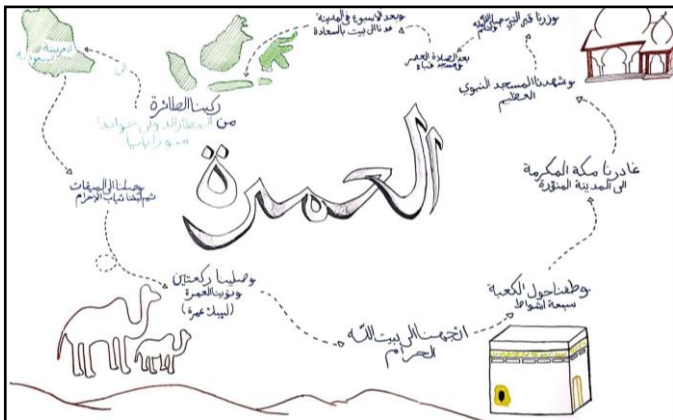 العمرة
ركبنا الطائرة
من المطار الدولي جواندا
سورابايا
الى
العربية
السعودية
وصلنا الى الميقات
ثم لبسنا ثياب الاحرام
وصلينا ركعتين
ونوينا العمرة
(لبيك عمرة)
اتجهنا الى بيت الله
الحرام
وطفنا حول الكعبة
سبعة اشواط
غادرنا مكة المكرمة
الى المدينة المنورة
وشهدنا المسجد النبوي
العظيم
وزرنا قبر النبي صلى الله عليه وسلم
بعد الصلاة العصر
ومسجد قباء
وبعد الاسبوع في المدينة
عدنا الى بيت بالسعادة